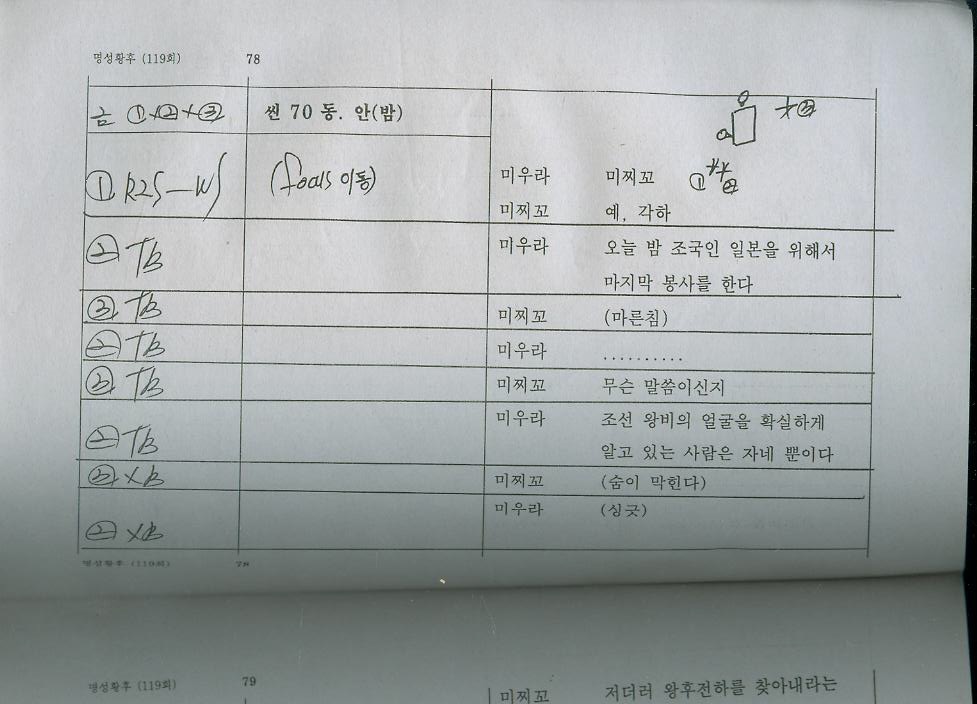 명성황후 (119회) 78
금 ①×②×③ 씬 70 동. 안(밤) ③
① R2S—W (focus 이동) 미우라 미찌꼬 ① ②
미찌꼬 예, 각하
② TB 미우라 오늘 밤 조국인 일본을 위해서
마지막 봉사를 한다
③ TB 미찌꼬 (마른침)
② TB 미우라 ..........
③ TB 미찌꼬 무슨 말씀이신지
② TB 미우라 조선 왕비의 얼굴을 확실하게
알고 있는 사람은 자네 뿐이다
③ XB 미찌꼬 (숨이 막힌다)
② XB 미우라 (싱긋)
명성황후 (119회) 78
명성황후 (119회) 79
미찌꼬 저더러 왕후전하를 찾아내라는